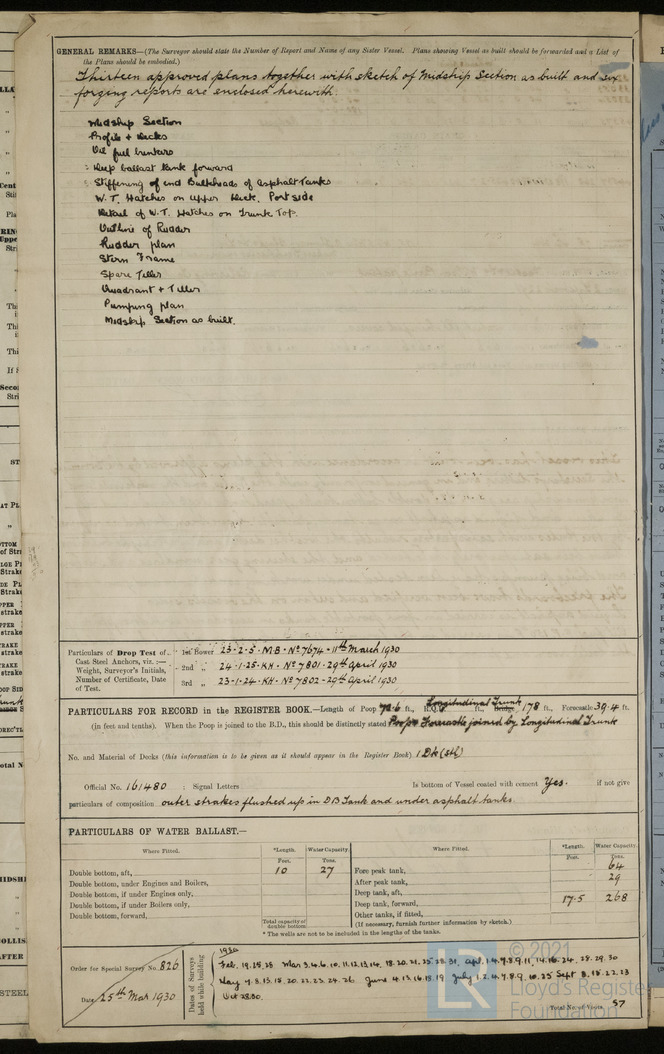 GENERAL REMARKS—(The Surveyor should state the Number of Report and Name of any Sister Vessel. Plans showing Vessel as built should be forwarded and a List of
the Plans should be embodied.)
Thirteen approved plans together with sketch of Midship Section as built and six
forging reports are enclosed herewith.
Midship Section
Profile + Decks
Oil fuel bunkers
Deep ballast tank forward
Stiffening of end Bulkheads of Asphalt Tanks
W.T. Hatches on Upper Deck. Port side
Detail of W.T. Hatches on Trunk Top.
Outline of Rudder
Rudder plan
Stern Frame
Spare Tiller
Quadrant + Tiller
Pumping plan
Midship Section as built.
Particulars of Drop Test of
Cast Steel Anchors, viz.:—
Weight, Surveyor's Initials,
Number of Certificate, Date
of Test.
1st Bower 23-2-5 - M.B - No 7674 - 11th March 1930
2nd „ 24-1-25-KH - No 7801 - 29th April 1930
3rd „ 23-1-24-KH - No 7802 - 29th April 1930
PARTICULARS FOR RECORD in the REGISTER BOOK.—Length of Poop 72.6 ft., Longitudinal Trunk ft., Bridge 178 ft., Forecastle 39.4 ft.
(in feet and tenths). When the Poop is joined to the B.D., this should be distinctly stated Poop + Forecastle joined by Longitudinal Trunk
No. and Material of Decks (this information is to be given as it should appear in the Register Book) 1 Dk (Stl)
Official No. 161480 ; Signal Letters Is bottom of Vessel coated with cement Yes. if not give
particulars of composition outer strakes flushed up in DB Tank and under asphalt tanks.
PARTICULARS OF WATER BALLAST.—
Where Fitted. *Length. Water Capacity. Where Fitted. *Length. Water Capacity.
Feet. Tons. Feet. Tons.
Double bottom, aft, 10 27 Fore peak tank, 64
Double bottom, under Engines and Boilers, After peak tank, 29
Double bottom, if under Engines only, Deep tank, aft,
Double bottom, if under Boilers only, Deep tank, forward, 17.5 268
Double bottom, forward, Other tanks, if fitted,
Total capacity of double bottom (If necessary, furnish further information by sketch.)
* The wells are not to be included in the lengths of the tanks.
Order for Special Survey No. 826
Date 25th Mar 1930
Dates of Surveys held while building
1930
Feb. 19.25.28 Mar 3.4.6.10.11.12.13.14.18.20.21.25.28.31. Apl. 1.4.7.8.9.11.14.16.24.28.29.30
May 7.8.13.15.20.22.23.24.26 June 4.13.16.18.19 July 1.2.4.7.8.9.10.25 Sept 8.15.22.23
Oct 28.30.
Total No. of Visits 57
© 2021
LR
Lloyd's Register
Foundation